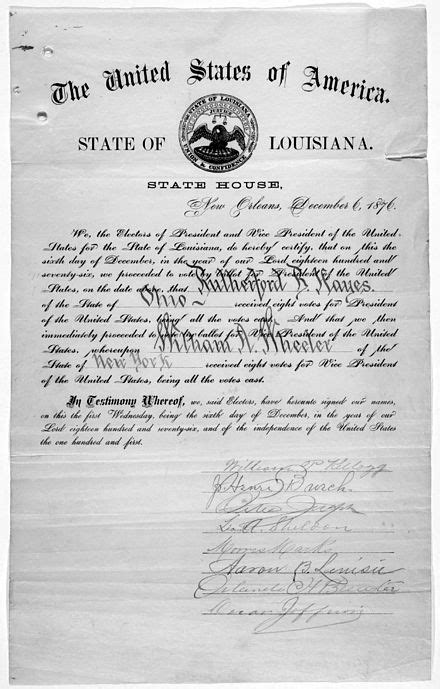 The United States of America.
STATE OF LOUISIANA.
STATE OF LOUISIANA
JUSTICE
UNION & CONFIDENCE
STATE HOUSE,
New Orleans, December 6, 1876.
We, the Electors of President and Vice President of the United
States for the State of Louisiana, do hereby certify, that on this the
sixth day of December, in the year of our Lord eighteen hundred and
seventy-six, we proceeded to vote by ballot for President of the United
States, on the date above, that Rutherford B. Hayes
of the State of Ohio received eight votes for President
of the United States, being all the votes cast. And that we then
immediately proceeded to vote by ballot for Vice President of the United
States, whereupon William A. Wheeler of the
State of New York received eight votes for Vice President
of the United States, being all the votes cast.
In Testimony Whereof, we, said Electors, have hereunto signed our names,
on this the first Wednesday, being the sixth day of December, in the year of our
Lord eighteen hundred and seventy-six, and of the independence of the United States
the one hundred and first.
William P. Kellogg
J. Henri Burch
Peter Joseph
L. A. Sheldon
Morris Marks
Aaron B. Levisee
Orlando H. Brewster
Oscar Joffrion